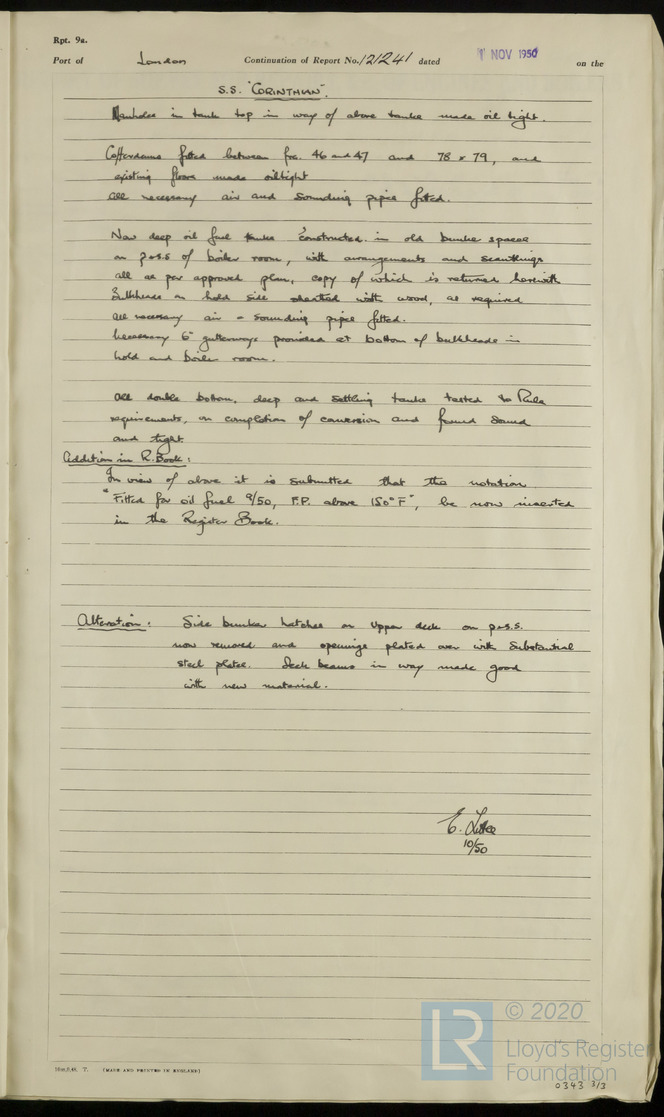 Rpt. 9a.
Port of London Continuation of Report No. 121241 dated 1 NOV 1950 on the
S.S. "CORINTHIAN".
Manholes in tank top in way of above tanks made oil tight.
Cofferdams fitted between frs. 46 and 47 and 78 & 79, and
existing floors made oiltight
All necessary air and sounding pipes fitted.
New deep oil fuel tanks constructed in old bunker spaces
on p&s.s of boiler room, with arrangements and scantlings
all as per approved plan, copy of which is returned herewith
Bulkheads on hold side sheathed with wood, as required
All necessary air & sounding pipes fitted.
Necessary 6" gutterways provided at bottom of bulkheads in
hold and boiler room.
All double bottom, deep and settling tanks tested to Rule
requirements, on completion of conversion and found sound
and tight
Addition in R. Book:
In view of above it is submitted that the notation
"Fitted for oil fuel 9/50, F.P. above 150°F", be now inserted
in the Register Book.
Alteration: Side bunker hatches on upper deck on p&s.s.
now removed and openings plated over with substantial
steel plates. Deck beams in way made good
with new material.
E.
10/50
(MADE AND PRINTED IN ENGLAND)
LR
© 2020
Lloyd's Register
Foundation
0343 3/3